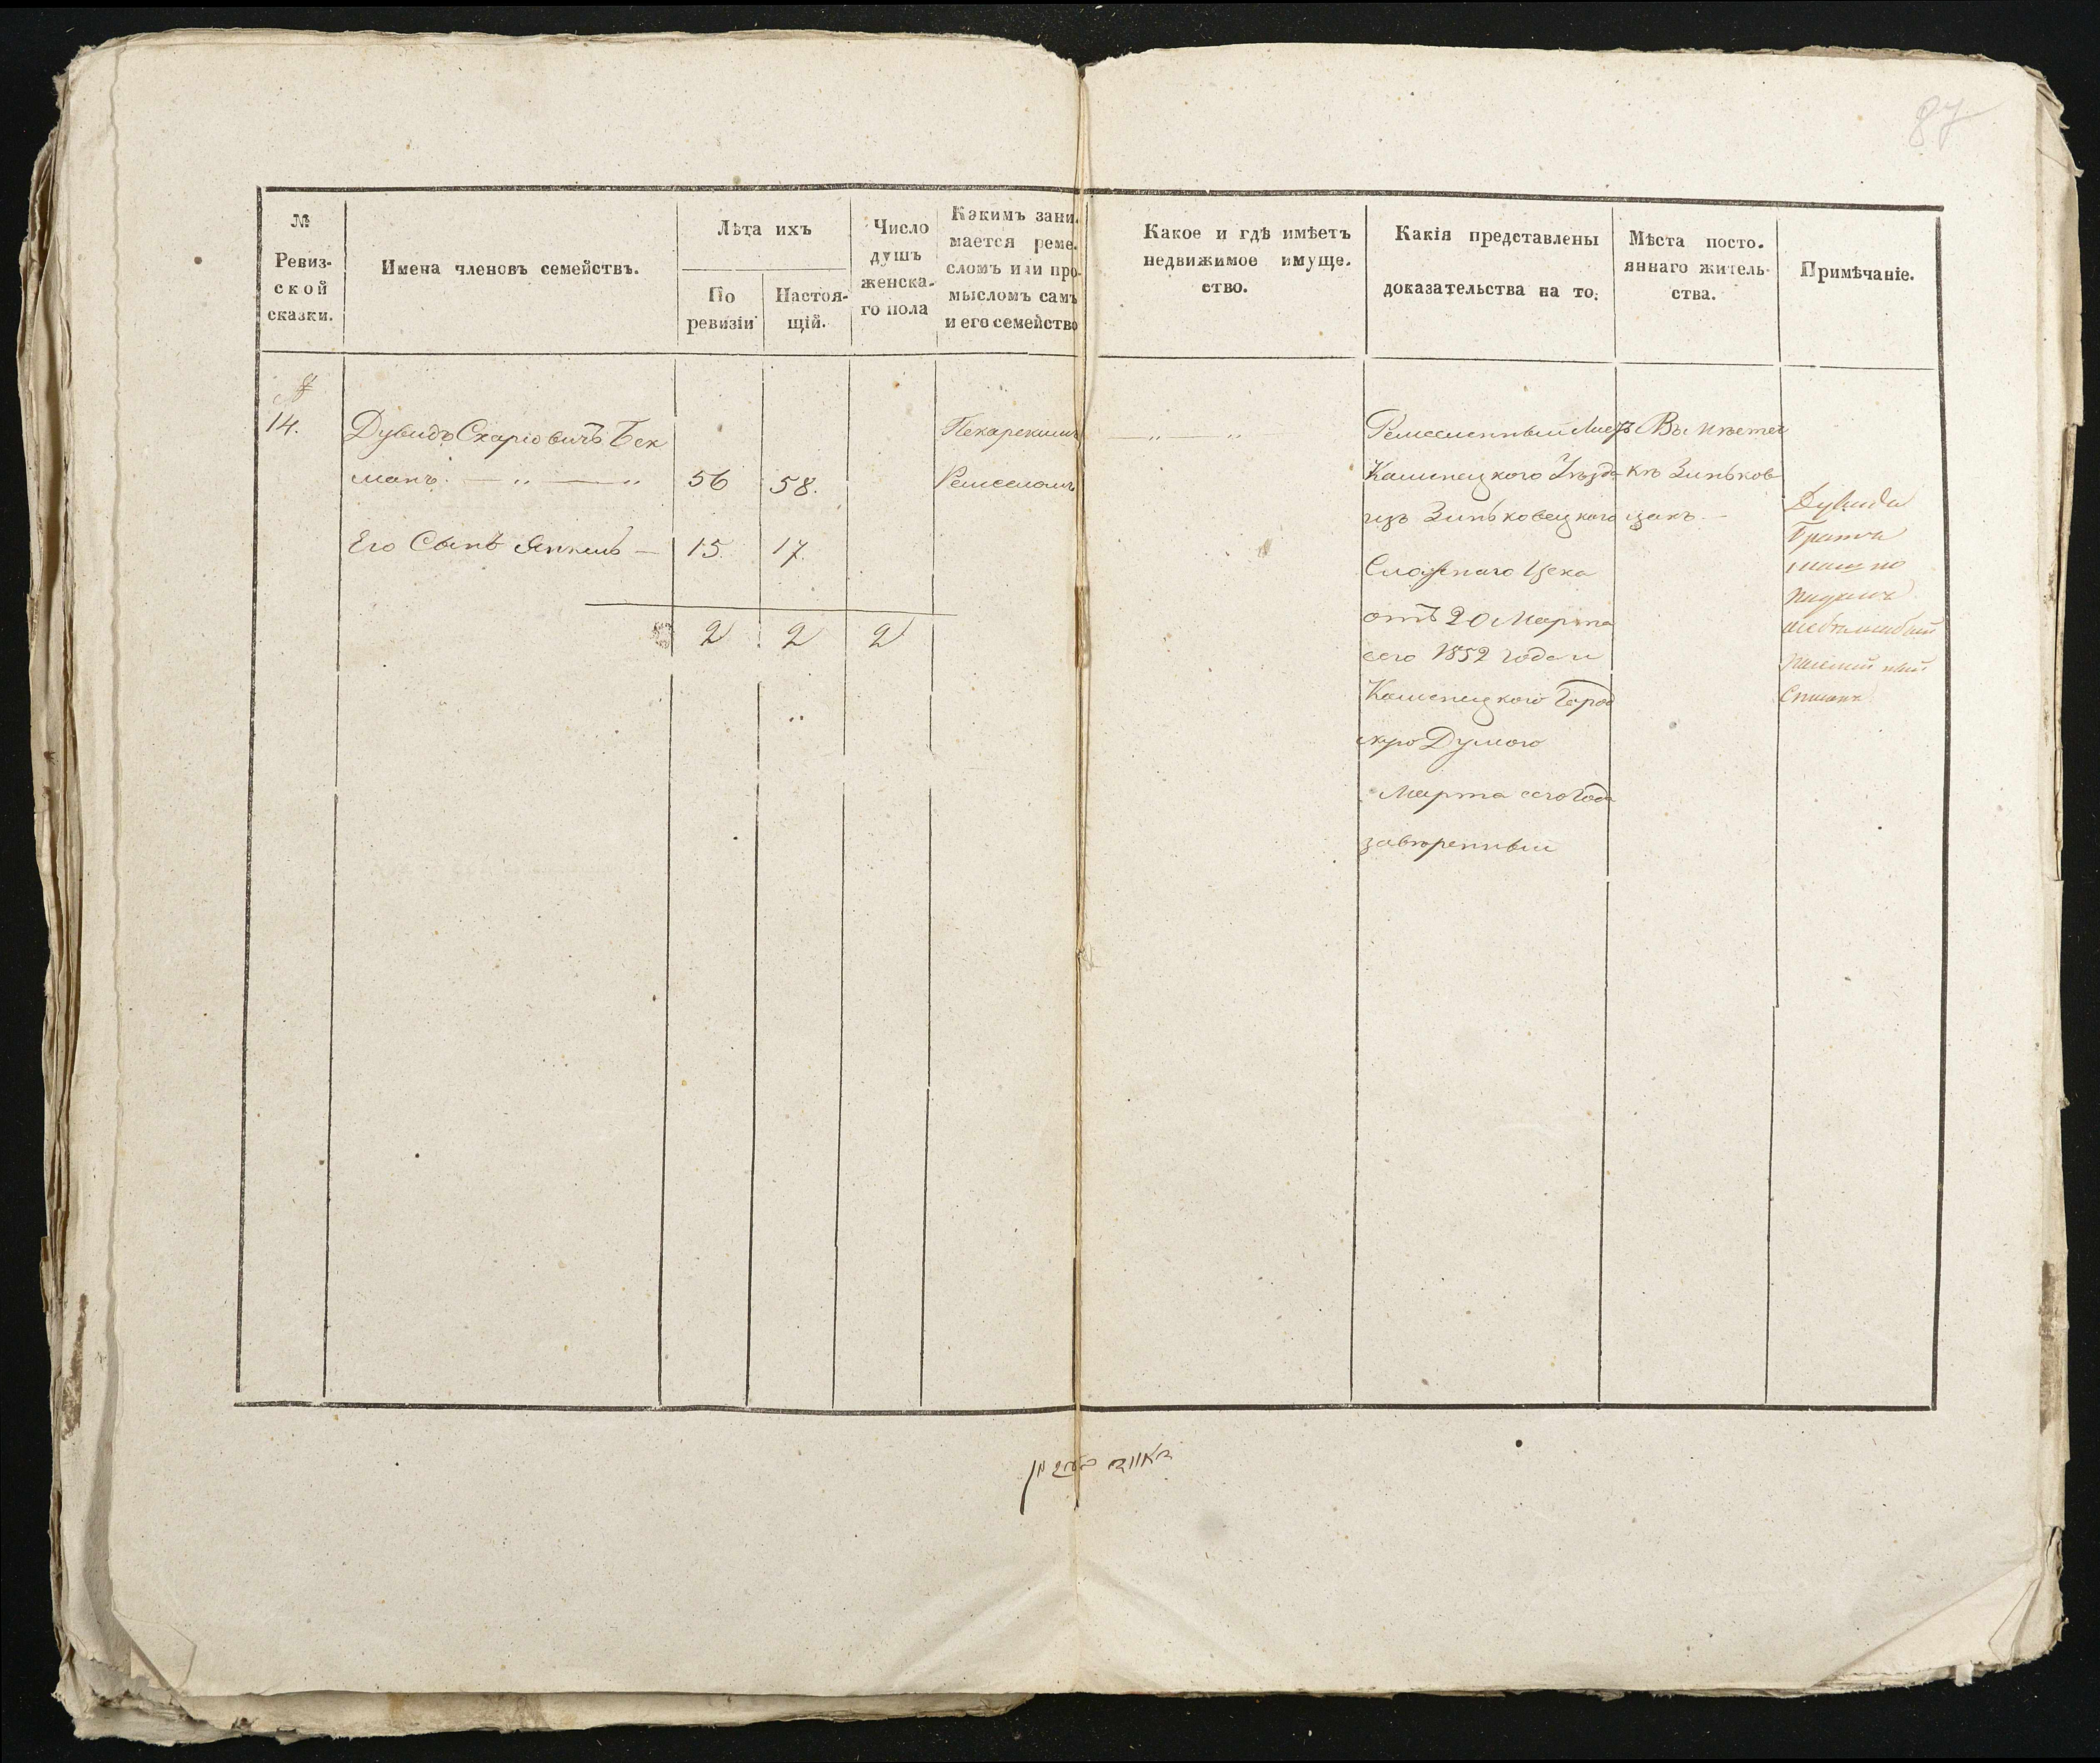 87
№ Ревиз-
ской
сказки.
Имена членовъ семействъ.
Лѣта ихъ
По
ревизіи
Настоя-
щій.
Число
душъ
женска-
го пола
Какимъ зани-
мается реме-
сломъ или про-
мысломъ самъ
и его семейство
Какое и гдѣ имѣетъ
недвижимое имуще-
ство.
Какія представлены
доказательства на то.
Мѣста посто-
яннаго житель-
ства.
Примѣчаніе.
14.
Дувидъ Схаріовичъ Бек
манъ. — „ — „ 56 58.
Его Сынъ Янкель — 15 17.
2 2 2
Пекарскимъ
Ремесломъ
— „ — „ —
Ремесленный Листъ
Каменецкого Уѣзда
изъ Зиньковецкого
Сложнаго Цеха
отъ 20 Марта
сего 1852 года и
Каменецкого Город
скую Думою
Марта сего года
завѣренный
Въ мѣстеч
кѣ Зиньков
цахъ. —
Дувида